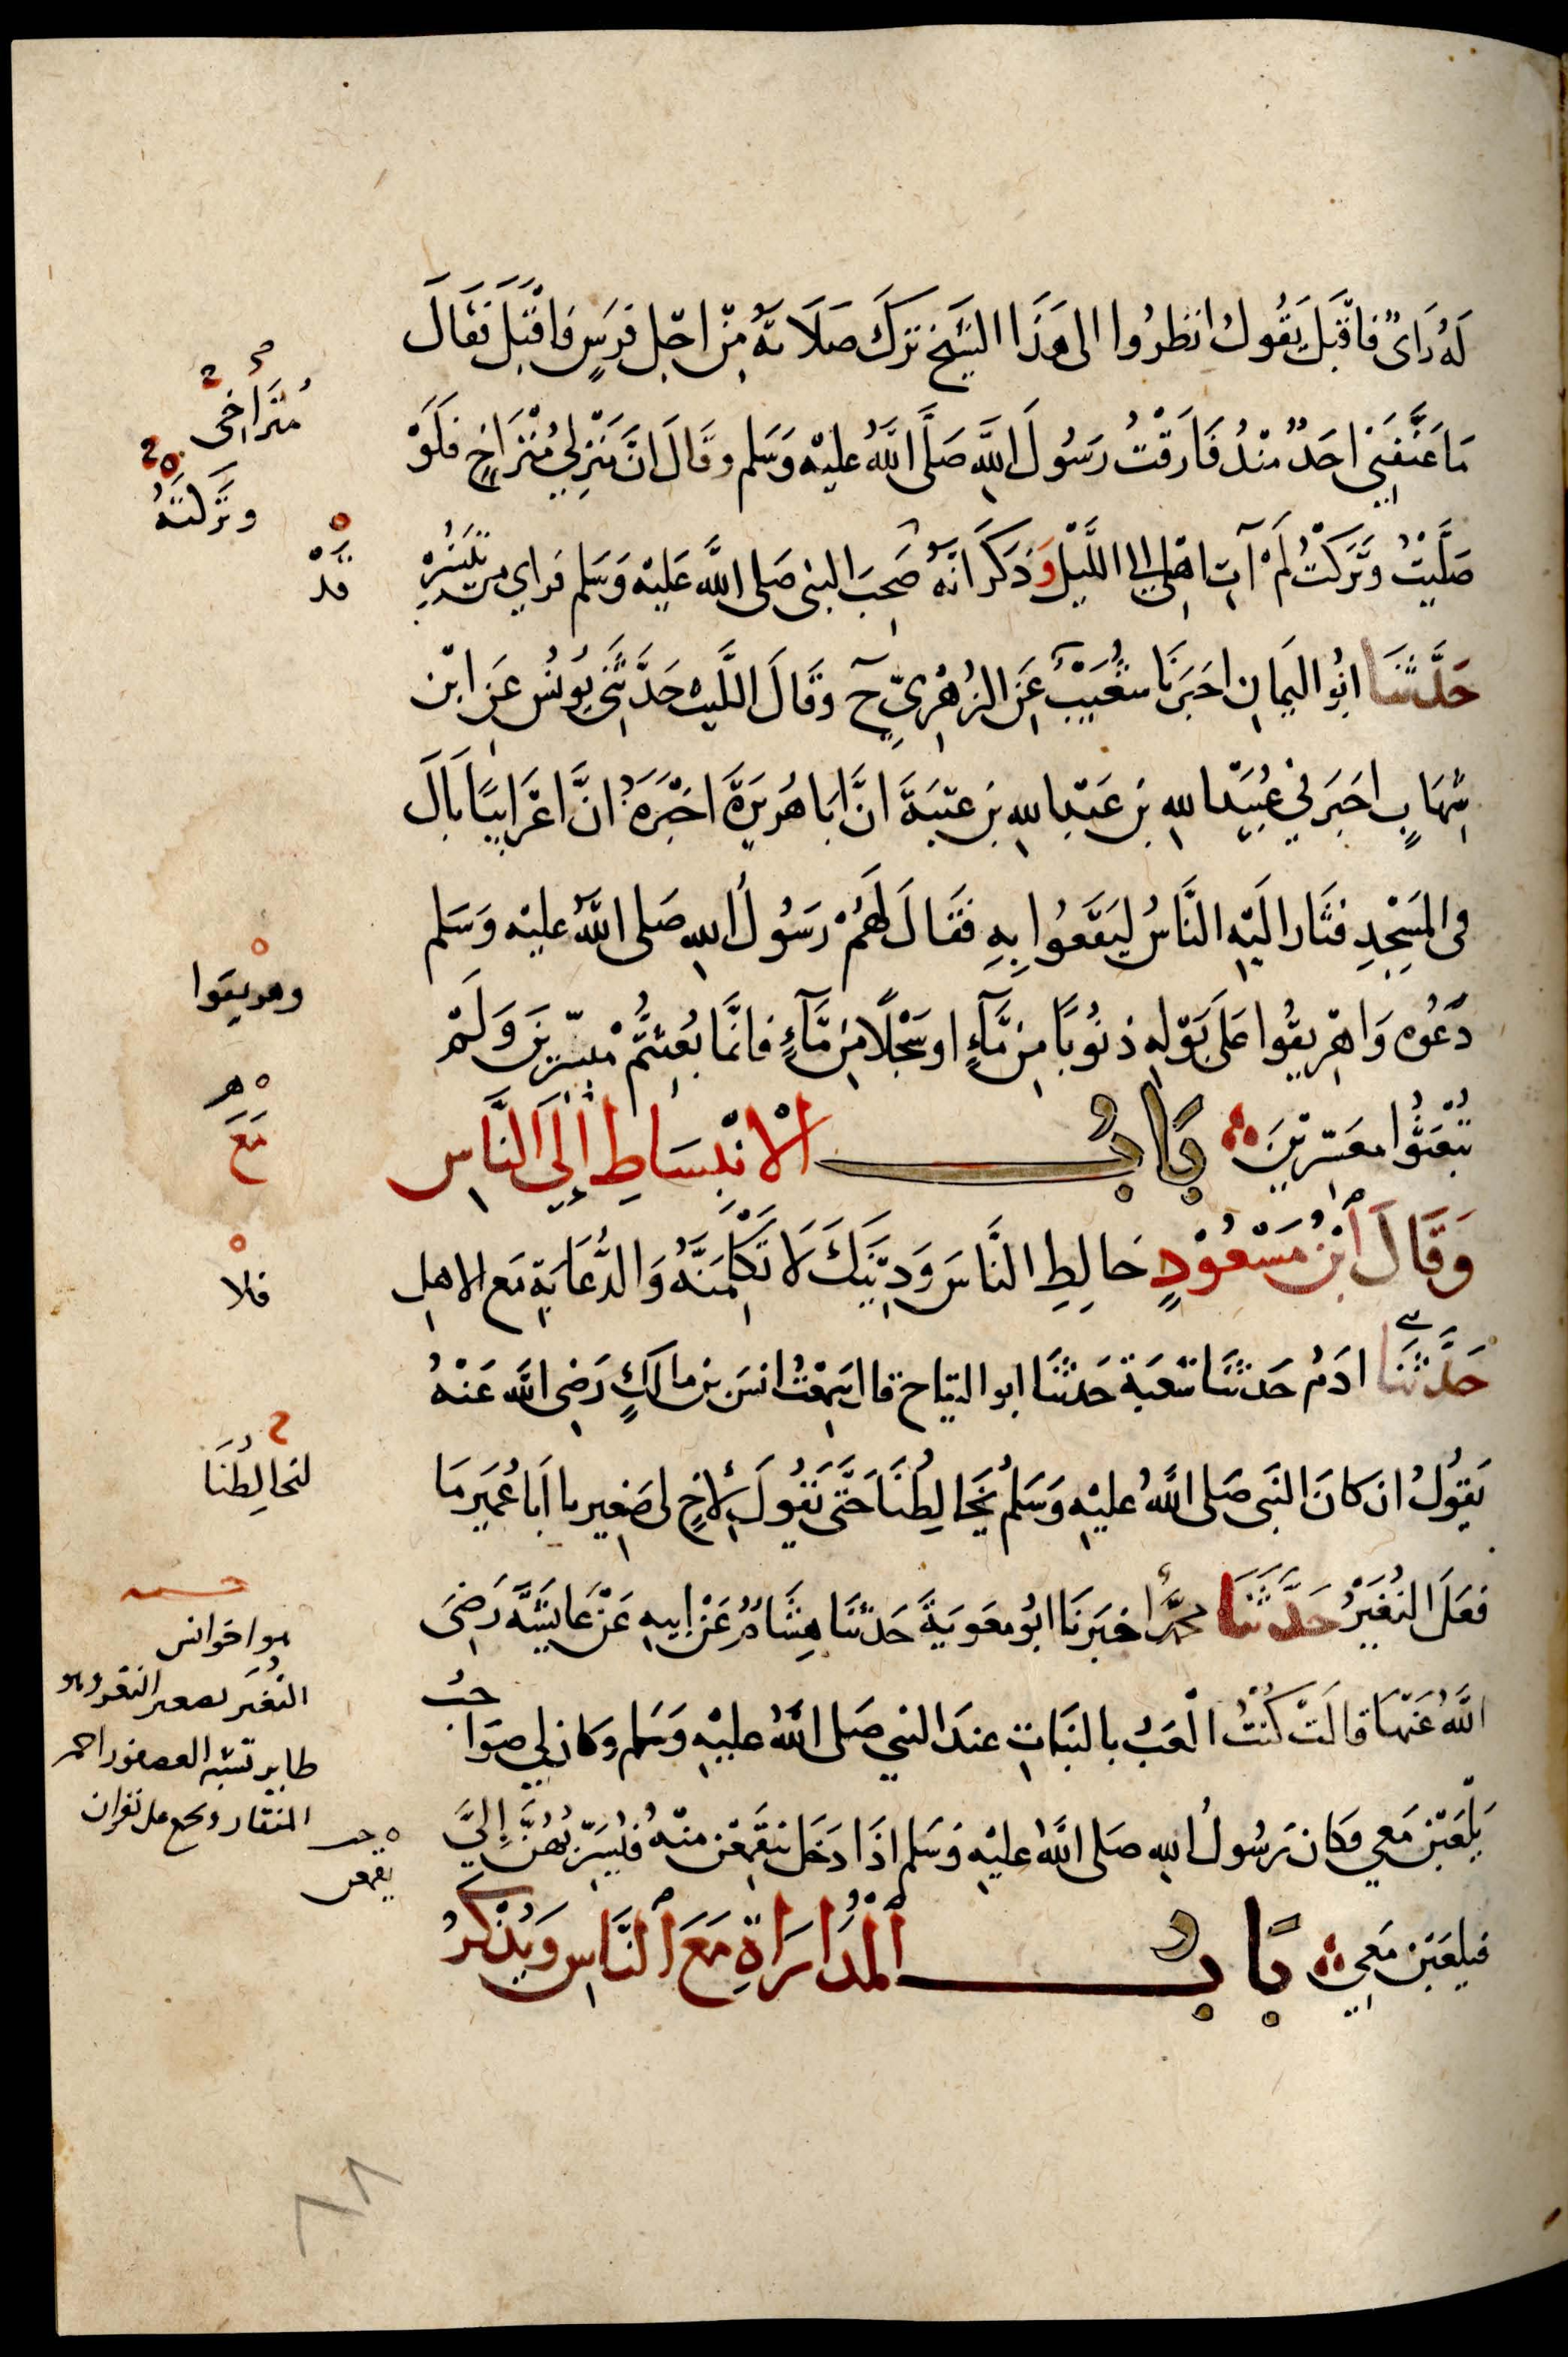 لَهُ رَاىٌ فَاقْبَلَ يَقُولُ انظرُوا الى هَذَا الشَيْخ تَرَكَ صَلَاتَهُ مِنْ اجْلِ فَرَسٍ فَاقْبَلَ فَقَالَ
مَا عَنَّفَنِي احَدٌ مُنْذُ فَارَقْتُ رَسُولَ اللَّهِ صَلَّى اللَّهُ عليْهِ وَسَلم وقَالَ انَّ مَنْزِلي مُتْرَاخٍ فَلَوْ
صَلَّيْتُ وَتَرَكْتُ لَمْ آتِ اهْلِي الى اللَّيْلِ وَذَكَرَ انَّهُ صَحِبَ النبى صَلى اللَّه عَليْه وَسَلم فراي من تَيْسِيْرِهِ
حَدَّثَنَا ابُو اليَمانِ اخبَرَنَا شُعَيْبٌ عَنِ الزُهْرِيِّ ح وقَالَ اللَّيث حَدَّثَنِي يُونُس عَنِ ابْن
شِهَابٍ اخبَرَني عُبَيْدُ اللهِ بن عَبْدِ اللهِ بن عتبَةَ انَّ ابَا هُرَيرَةَ اخْبَرَهُ انَّ اعْرَابيًا بَالَ
فى المَسْجِدِ فثَارَ اليْهِ النَّاسُ لِيَقَعُوا بِهِ فَقَالَ لَهُمْ رَسُولُ اللهِ صَلى اللَّهُ عليْه وَسَلم
دَعُوه وَاهْرِيقُوا عَلَى بَوْلِهِ ذنُوبًا مِن مَّآءٍ او سَجْلًا مِن مَّآءٍ فانَّمَا بُعِثْتُمْ مُيَسّرِينَ وَلَمْ
تُبْعَثُوا معَسّرِيْنَ بَابُ الْانْبِسَاطِ إِلَى النَّاسِ
وَقَالَ ابْنُ مَسْعُوْدٍ خَالِطِ النَّاسَ وَدِيْنَكَ لَا تَكْلِمَنَّهُ وَالدُّعَابَةِ مَع الاهلِ
حَدَّثَنَا ادَمُ حَدثنَا شعْبَة حَدثنَا ابو التياح قال سَمِعْتُ انسَ بن مالكٍ رَضِى اللَّه عَنْهُ
يَقُولُ ان كانَ النَبى صَلى اللَّهُ عليْهِ وَسَلم يُخَالِطُنَا حَتَّى يَقُولَ لأخٍ لى صَغِير يا أبَا عُمَيرٍ مَا
فعَلَ النُغَيْرُ حَدَّثَنَا محمَّدٌ اخبَرنَا ابُو معَوِيَةَ حَدثنَا هِشَامٌ عَنْ ابيهِ عَنْ عَايشَةَ رَضِىَ
اللَّهُ عَنْهَا قالَتْ كُنْتُ الْعَبُ بالبَنَاتِ عندَ النبي صَلى اللَّهُ عليْهِ وَسَلم وكَانَ لِي صَوَاحبُ
يَلْعَبْنَ مَعي وكَان رَسُولُ اللهِ صَلى اللَّهُ عليْهِ وَسَلم اذَا دَخَل يَتَقَمَّعْنَ منْهُ فيُسَرِّبُهُنَّ إِلَيَّ
فيلعَبْنَ مَعِي بَابُ الْمُدَارَاةِ مَعَ النَّاسِ وَيُذْكَرُ
مُتَرَاخٍى
وتَرَكتهُ
قَدْ
وهريقوا
مَعَ
فلا
لنخالِطُنَا
هو اخو انس
النُغَير تصغير النغر وهو
طاير تشبه العصفور احمر
المنقار ويجمع على نغران
٨٨